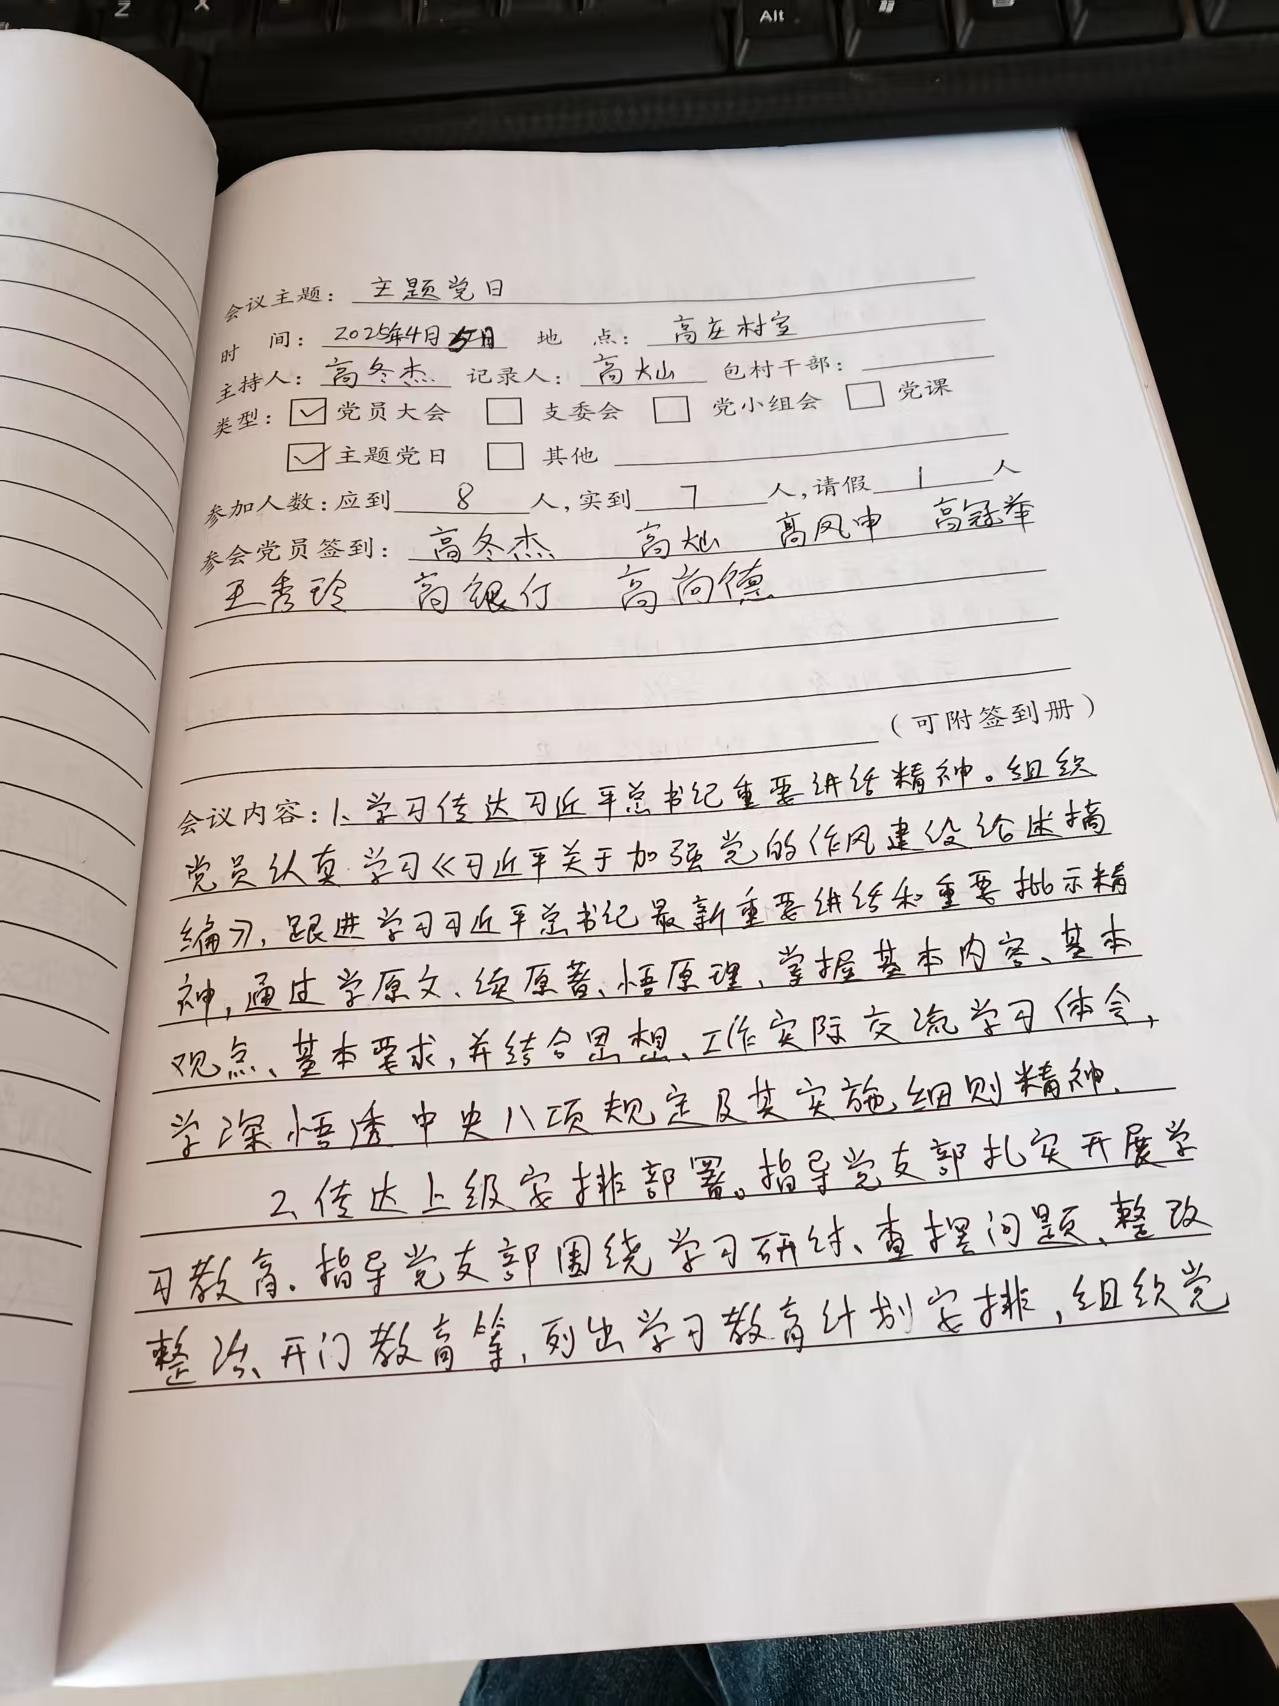 Alt
Z
X
会议主题：主题党日
时 间：2025年4月5日 地 点：高庄村室
主持人：高冬杰 记录人：高灿 包村干部：
类型：☑党员大会 □支委会 □党小组会 □党课
☑主题党日 □其他
参加人数：应到 8 人，实到 7 人，请假 1 人
参会党员签到：高冬杰 高灿 高风申 高冠举
王秀玲 高银行 高尚德
（可附签到册）
会议内容：1、学习传达习近平总书记重要讲话精神。组织
党员认真学习《习近平关于加强党的作风建设论述摘
编》，跟进学习习近平总书记最新重要讲话和重要批示精
神，通过学原文、读原著、悟原理、掌握基本内容、基本
观点、基本要求，并结合思想、工作实际交流学习体会，
学深悟透中央八项规定及其实施细则精神.
2、传达上级安排部署。指导党支部扎实开展学
习教育.指导党支部围绕学习研讨、查摆问题、整改
整治、开门教育等，列出学习教育计划安排，组织党